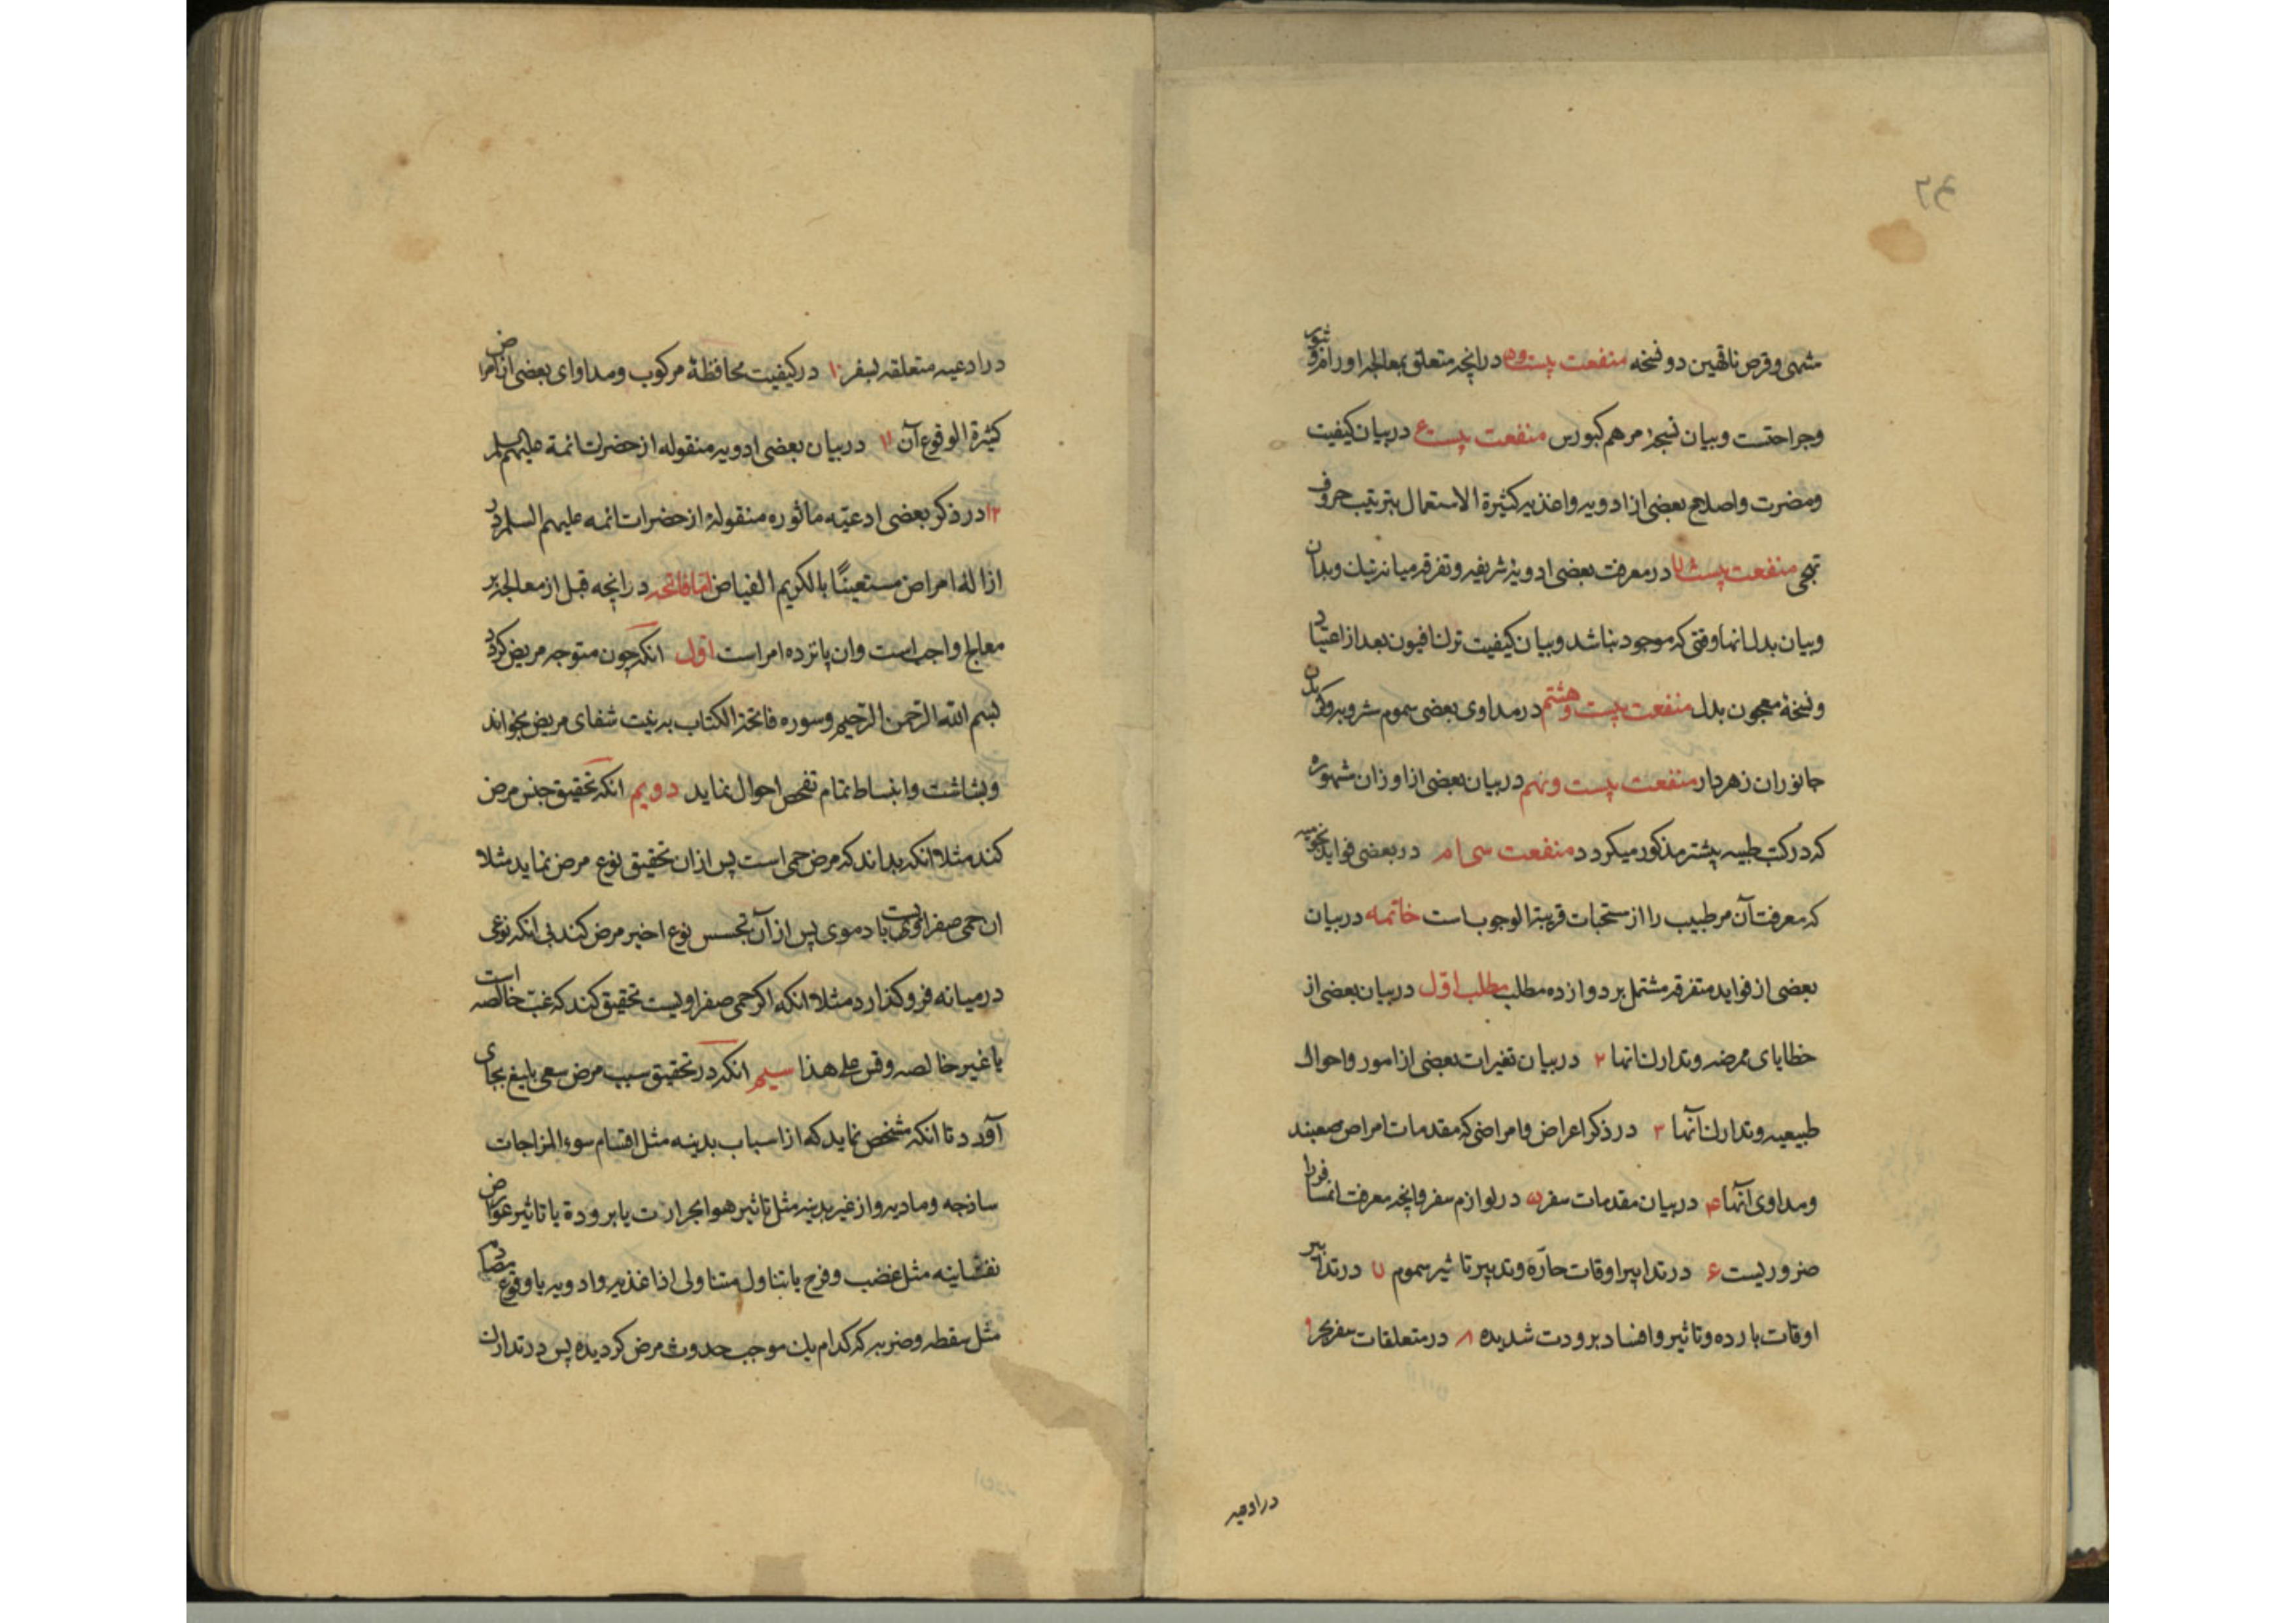 مشهی وقرص ناقهین دو نسخه منفعت بیست و درانچه متعلق بمعالجه اورام وبثور
وجراحتست وبیان نسخهٔ مرهم کبورس منفعت بیست دربیان کیفیت
ومضرت واصلاح بعضی از ادویه واغذیه کثیرة الاستعمال بترتیب حروف
تهجی منفعت بیست در معرفت بعضی ادویهٔ شریفه وتفرقه میانه نیك وبد ان
وبیان بدل انها وقتی که موجود نباشد وبیان کیفیت ترك افیون بعد از اعتیاد
ونسخهٔ معجون بدل منفعت بیست وهشتم در مداوی بعضی سموم مشروبه وکزیدن
جانوران زهردار منفعت بیست ونهم دربیان بعضی از اوزان مشهوره
که درکتب طبیه بیشتر مذکور میکردد منفعت سی ام در بعضی فواید نجومیه
که معرفت آن مر طبیب را از مستحبات قریبة الوجوب است خاتمه دربیان
بعضی از فواید متفرقه مشتمل بر دوازده مطلب مطلب اول دربیان بعضی از
خطایای ممرضه وتدارك انها ۲ دربیان تغیرات بعضی از امور واحوال
طبیعیه وتدارك آنها ۳ در ذکر اعراض وامراضی که مقدمات امراض صعبند
ومداوی آنها ۴ دربیان مقدمات سفر ۵ در لوازم سفر وانچه معرفت انمسافررا
ضروریست ۶ در تدابیر اوقات حارّه وتدبیر تاثیر سموم ۷ در تدابیر
اوقات بارده وتاثیر وافساد برودت شدیده ۸ در متعلقات سفر بحر ۹
در ادعیه
در ادعیه متعلقه بسفر ۱۰ در کیفیت محافظهٔ مرکوب ومداوای بعضی از امراض
کثیرة الوقوع آن ۱۱ دربیان بعضی ادویه منقوله از حضرات ائمة علیهم السلم
۱۲ در ذکر بعضی ادعیّه ماثوره منقولهٔ از حضرات ائمه علیهم السلم در
ازالهٔ امراض مستعینًا بالکریم الفیاض امّا فاتحه درانچه قبل از معالجه بر
معالج واجب است وان پانزده امر است اوّل انکه چون متوجه مریض کردد
بسم الله الرّحمن الرّحیم وسوره فاتحة الکتاب به نیت شفای مریض بخواند
وبشاشت وانبساط تمام تفحص احوال نماید دویم انکه تحقیق جنس مرض
کند مثلا انکه بداند که مرض حمی است پس از ان تحقیق نوع مرض نماید مثلا
ان حمی صفراویست یا دموی پس از آن تجسس نوع اخیر مرض کند بی انکه نوعی
درمیانه فروکذارد مثلا انکه اکر حمی صفراویست تحقیق کند که غبّ خالصه است
یا غیر خالصه وقس علی هذا سیم انکه در تحقیق سبب مرض سعی بلیغ بجای
آورد تا انکه مشخص نماید که از اسباب بدنیه مثل اقسام سوء المزاجات
ساذجه ومادیه واز غیر بدنیه مثل تاثیر هوا بحرارت یا برودة یا تاثیر عوارض
نفسانیه مثل غضب وفرح یا بتناول متناولی از اغذیه وادویه یا وقوع
مثل سقطه وضربه که کدام یك موجب حدوث مرض کردیده پس در تدارك